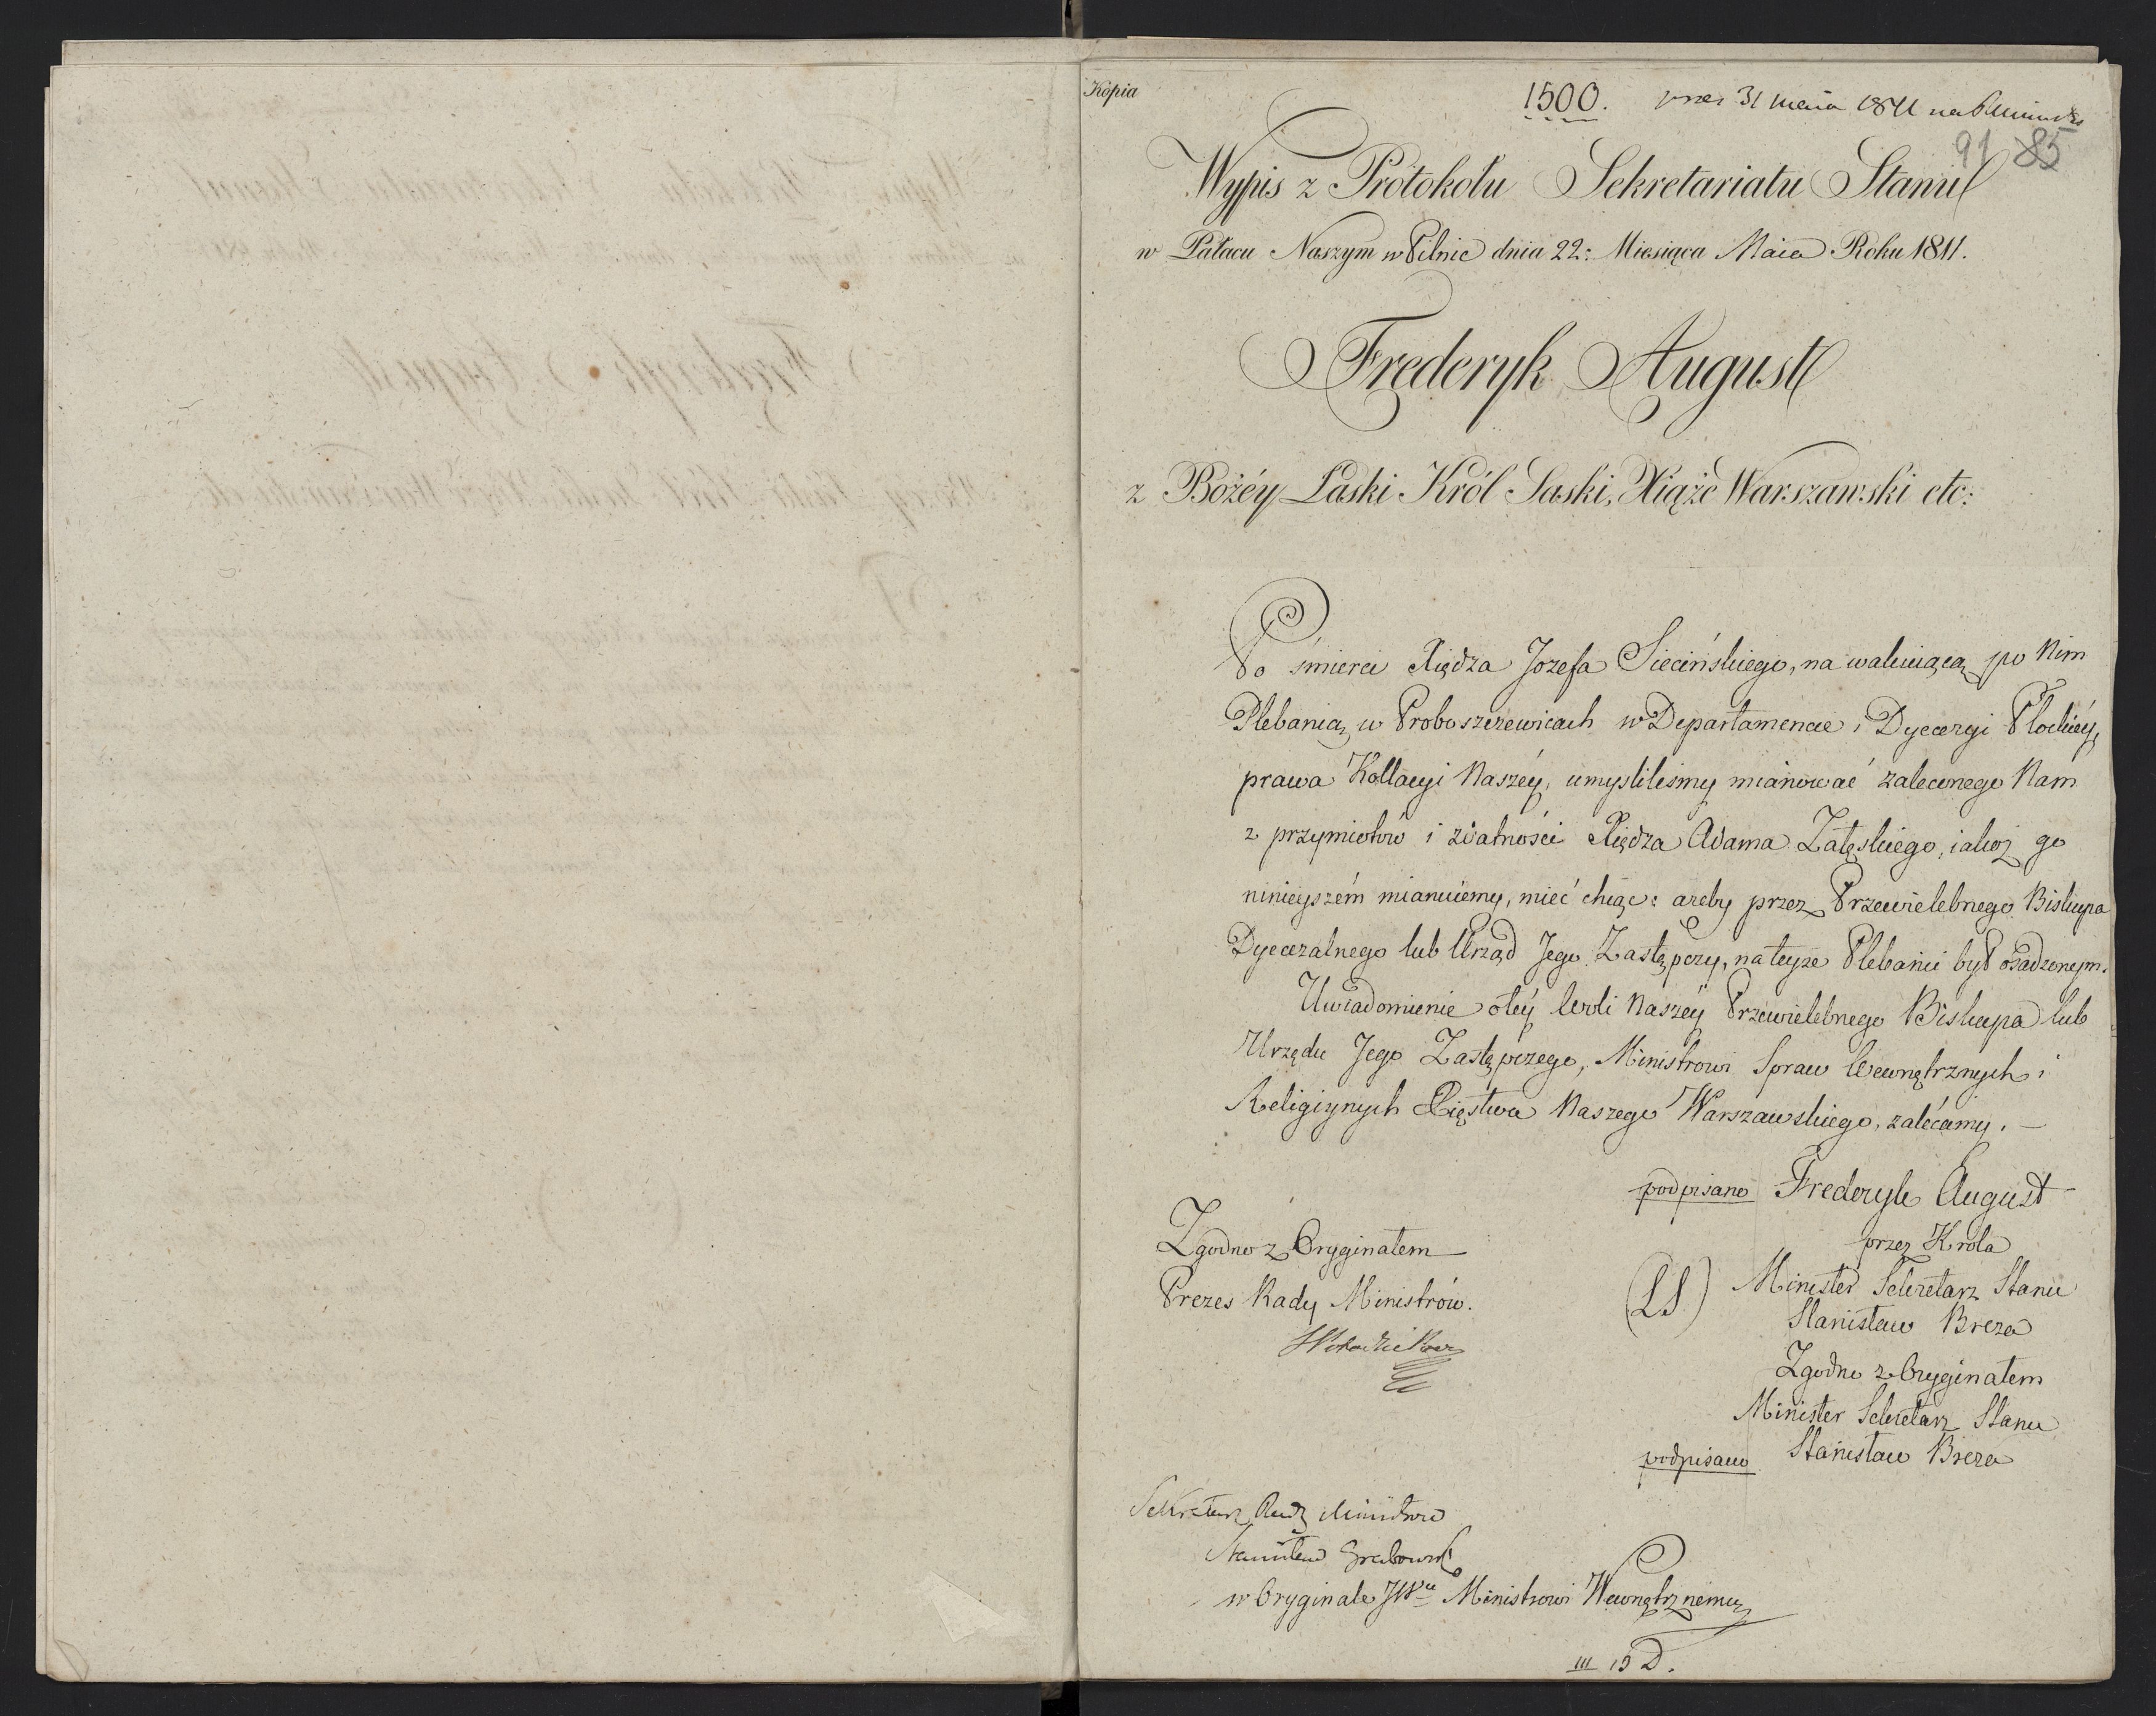 Kopia
1500. 31 maia 1811 na
91 85
Wypis z Protokołu Sekretariatu Stanu
w Pałacu Naszym w Pilnic dnia 22: Miesiąca Maia Roku 1811.
Frederyk August
z Bożéy Łaski Król Saski, Xiąże Warszawski etc:
Po śmierci Xiędza Jozefa Siecińskiego, na wakuiącą po Nim
Plebanią w Proboszczewicach w Departamencie i Dyecezyi Płockiéy,
prawa Kollacyi Naszéy, umyśliliśmy mianować zaleconego Nam
z przymiotów i zdatności Xiędza Adama Załęskiego, iakoż go
ninieyszém mianuiemy, mieć chcąc: ażeby przez Przewielebnego Biskupa
Dyecezalnego lub Urząd Jego Zastępczy, na teyże Plebanii był osadzonym.
Uwiadomienie o téy Woli Naszéy Przewielebnego Biskupa lub
Urzędu Jego Zastępczego, Ministrowi Spraw Wewnętrznych i
Religiynych Xięstwa Naszego Warszawskiego, zalécamy. —
podpisano Frederyk August
przez Krola
(LS) Minister Sekretarz Stanu
Stanisław Breza
Zgodno z Oryginałem
Minister Sekretarz Stanu
podpisano Stanisław Breza
Zgodno z Oryginałem
Prezes Rady Ministrów.
Sekretarz Rady Ministrów
Stanisław Grabowski
w Oryginale JWu Ministrowi Wewnętrznemu
III 15 D.